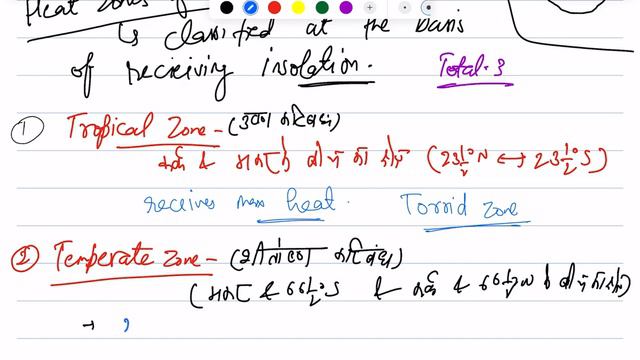 Heat Zones
is classified at the basis
of receiving insolation. Total-3
① Tropical Zone - (उष्ण कटिबंध)
कर्क से मकर के बीच का क्षेत्र (23½°N ↔ 23½°S)
receives max heat. Torrid zone
② Temperate Zone - (शीतोष्ण कटिबंध)
(मकर से 66½°S से कर्क से 66½°N के बीच का क्षेत्र)
→